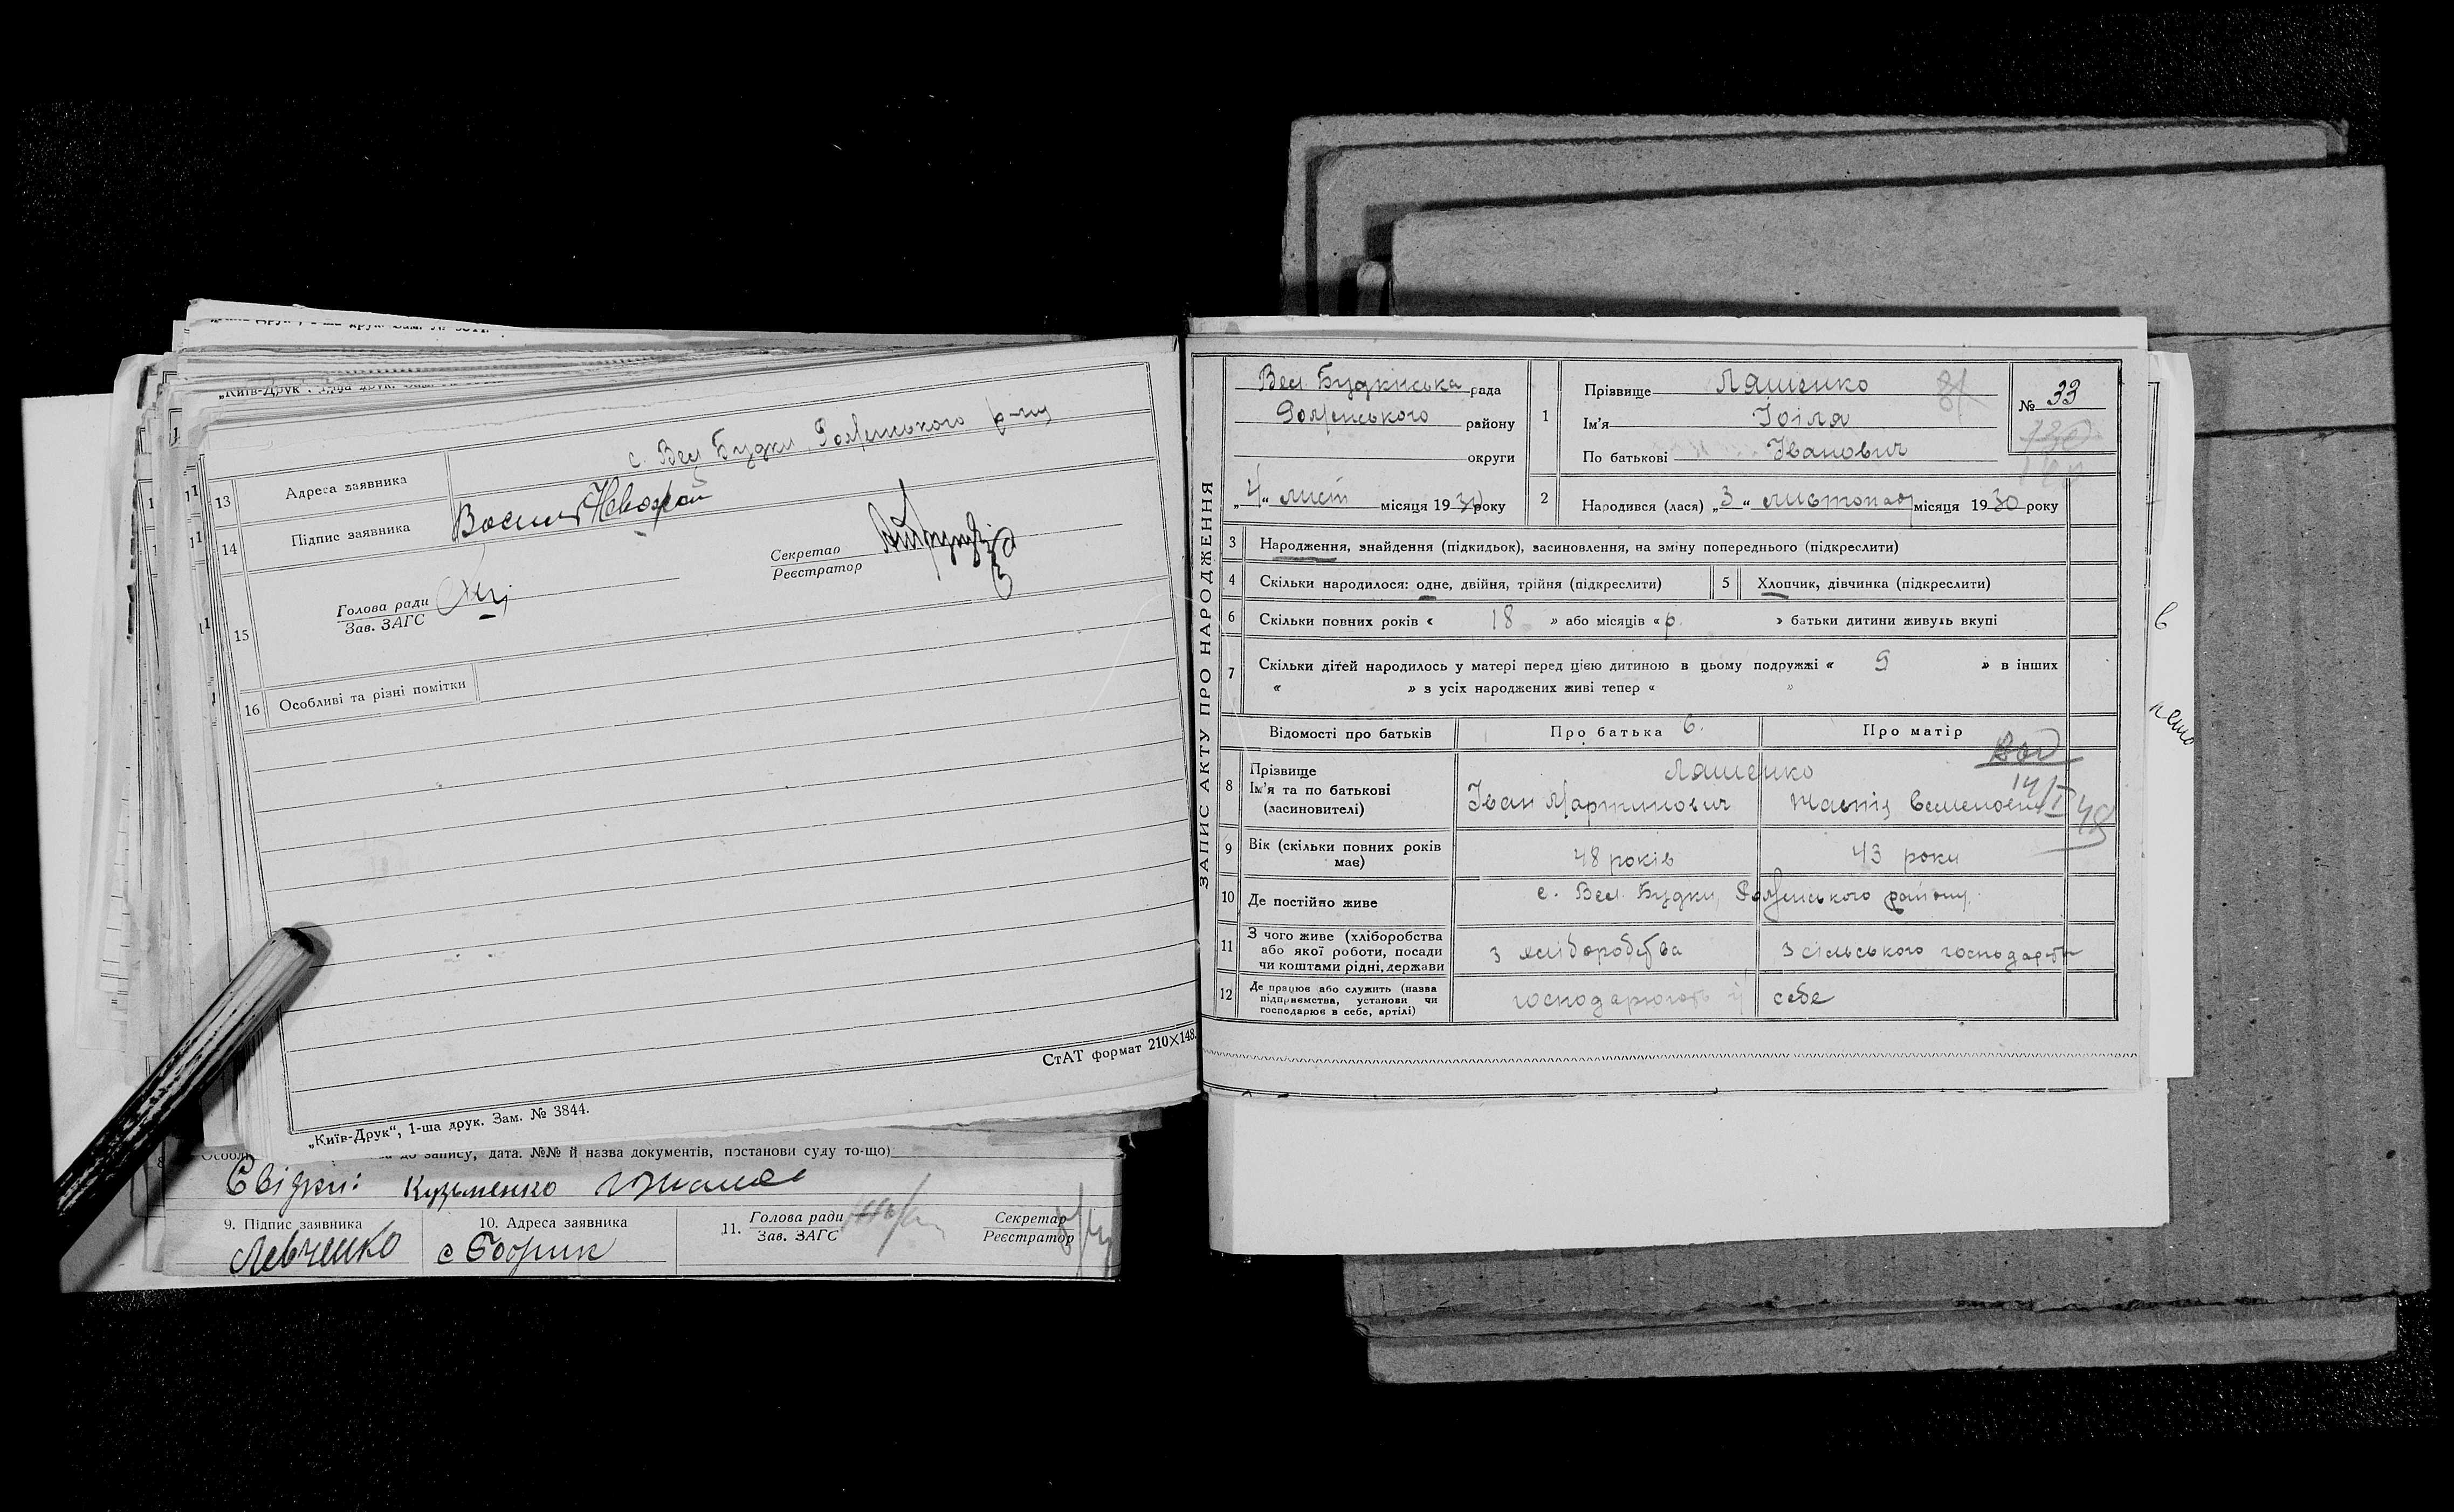 13 Адреса заявника с. Вел Будки, Роменського р-ну
14 Підпис заявника
Секретар
Реєстратор
15 Голова ради
Зав. ЗАГС
16 Особливі та різні помітки
СтАТ формат 210×148.
„Київ-Друк“, 1-ша друк. Зам. № 3844.
до запису, дата. №№ й назва документів, постанови суду то-що)
Свідки: Кузьменко
9. Підпис заявника 10. Адреса заявника 11. Голова ради Секретар
Зав. ЗАГС Реєстратор
Левченко с Бобрик
ЗАПИС АКТУ ПРО НАРОДЖЕННЯ
Вел. Будківська рада
Роменського району
округи
„4“ лист місяця 1930 року
1 Прізвище Ляшенко
Ім'я Іоіля
По батькові Іванович
№ 33
2 Народився (лася) „3“ листопад місяця 1930 року
3 Народження, знайдення (підкидьок), засиновлення, на зміну попереднього (підкреслити)
4 Скільки народилося: одне, двійня, трійня (підкреслити) 5 Хлопчик, дівчинка (підкреслити)
6 Скільки повних років « 18 » або місяців « р. » батьки дитини живуть вкупі
7 Скільки дітей народилось у матері перед цією дитиною в цьому подружжі « 9 » в інших
« » з усіх народжених живі тепер « »
Відомості про батьків Про батька 6. Про матір
8 Прізвище Ляшенко
Ім'я та по батькові Іван Мартинович
(засиновителі)
14/I 48
9 Вік (скільки повних років має) 48 років 43 роки
10 Де постійно живе с. Вел. Будки, Роменського району.
11 З чого живе (хліборобства з хліборобства з сільського господарств
або якої роботи, посади
чи коштами рідні, держави
12 Де працює або служить (назва господарюють у себе
підприємства, установи чи
господарює в себе, артілі)